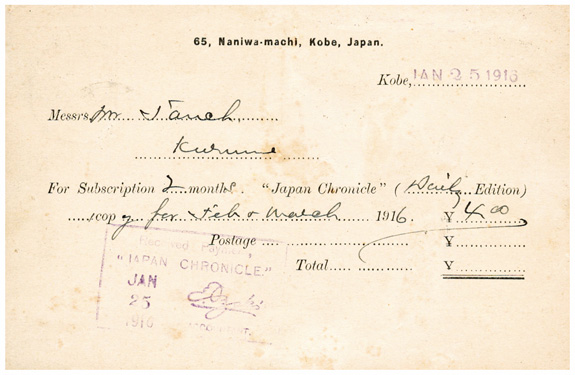 65, Naniwa-machi, Kobe, Japan.
Kobe, JAN 25 1916
Messrs. Mr.
Kurume
For Subscription 2 months. "Japan Chronicle" (Daily Edition)
copy for Feb & March 1916. ¥ 4.00
Postage .... ¥
Total..... ¥
Received Payment,
"JAPAN CHRONICLE."
JAN
25
1916
ACCOUNTANT.